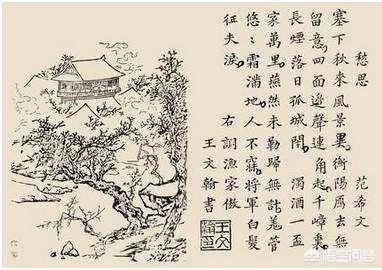 愁思 范希文
塞下秋來風景異衡陽雁去無
留意四面邊聲連角起千嶂裏
長煙落日孤城閉 濁酒一盃
家萬里燕然未勒歸無計羌管
悠〻霜滿地人不寐將軍白髮
征夫淚 右調漁家傲
王文翰書
悟空问答